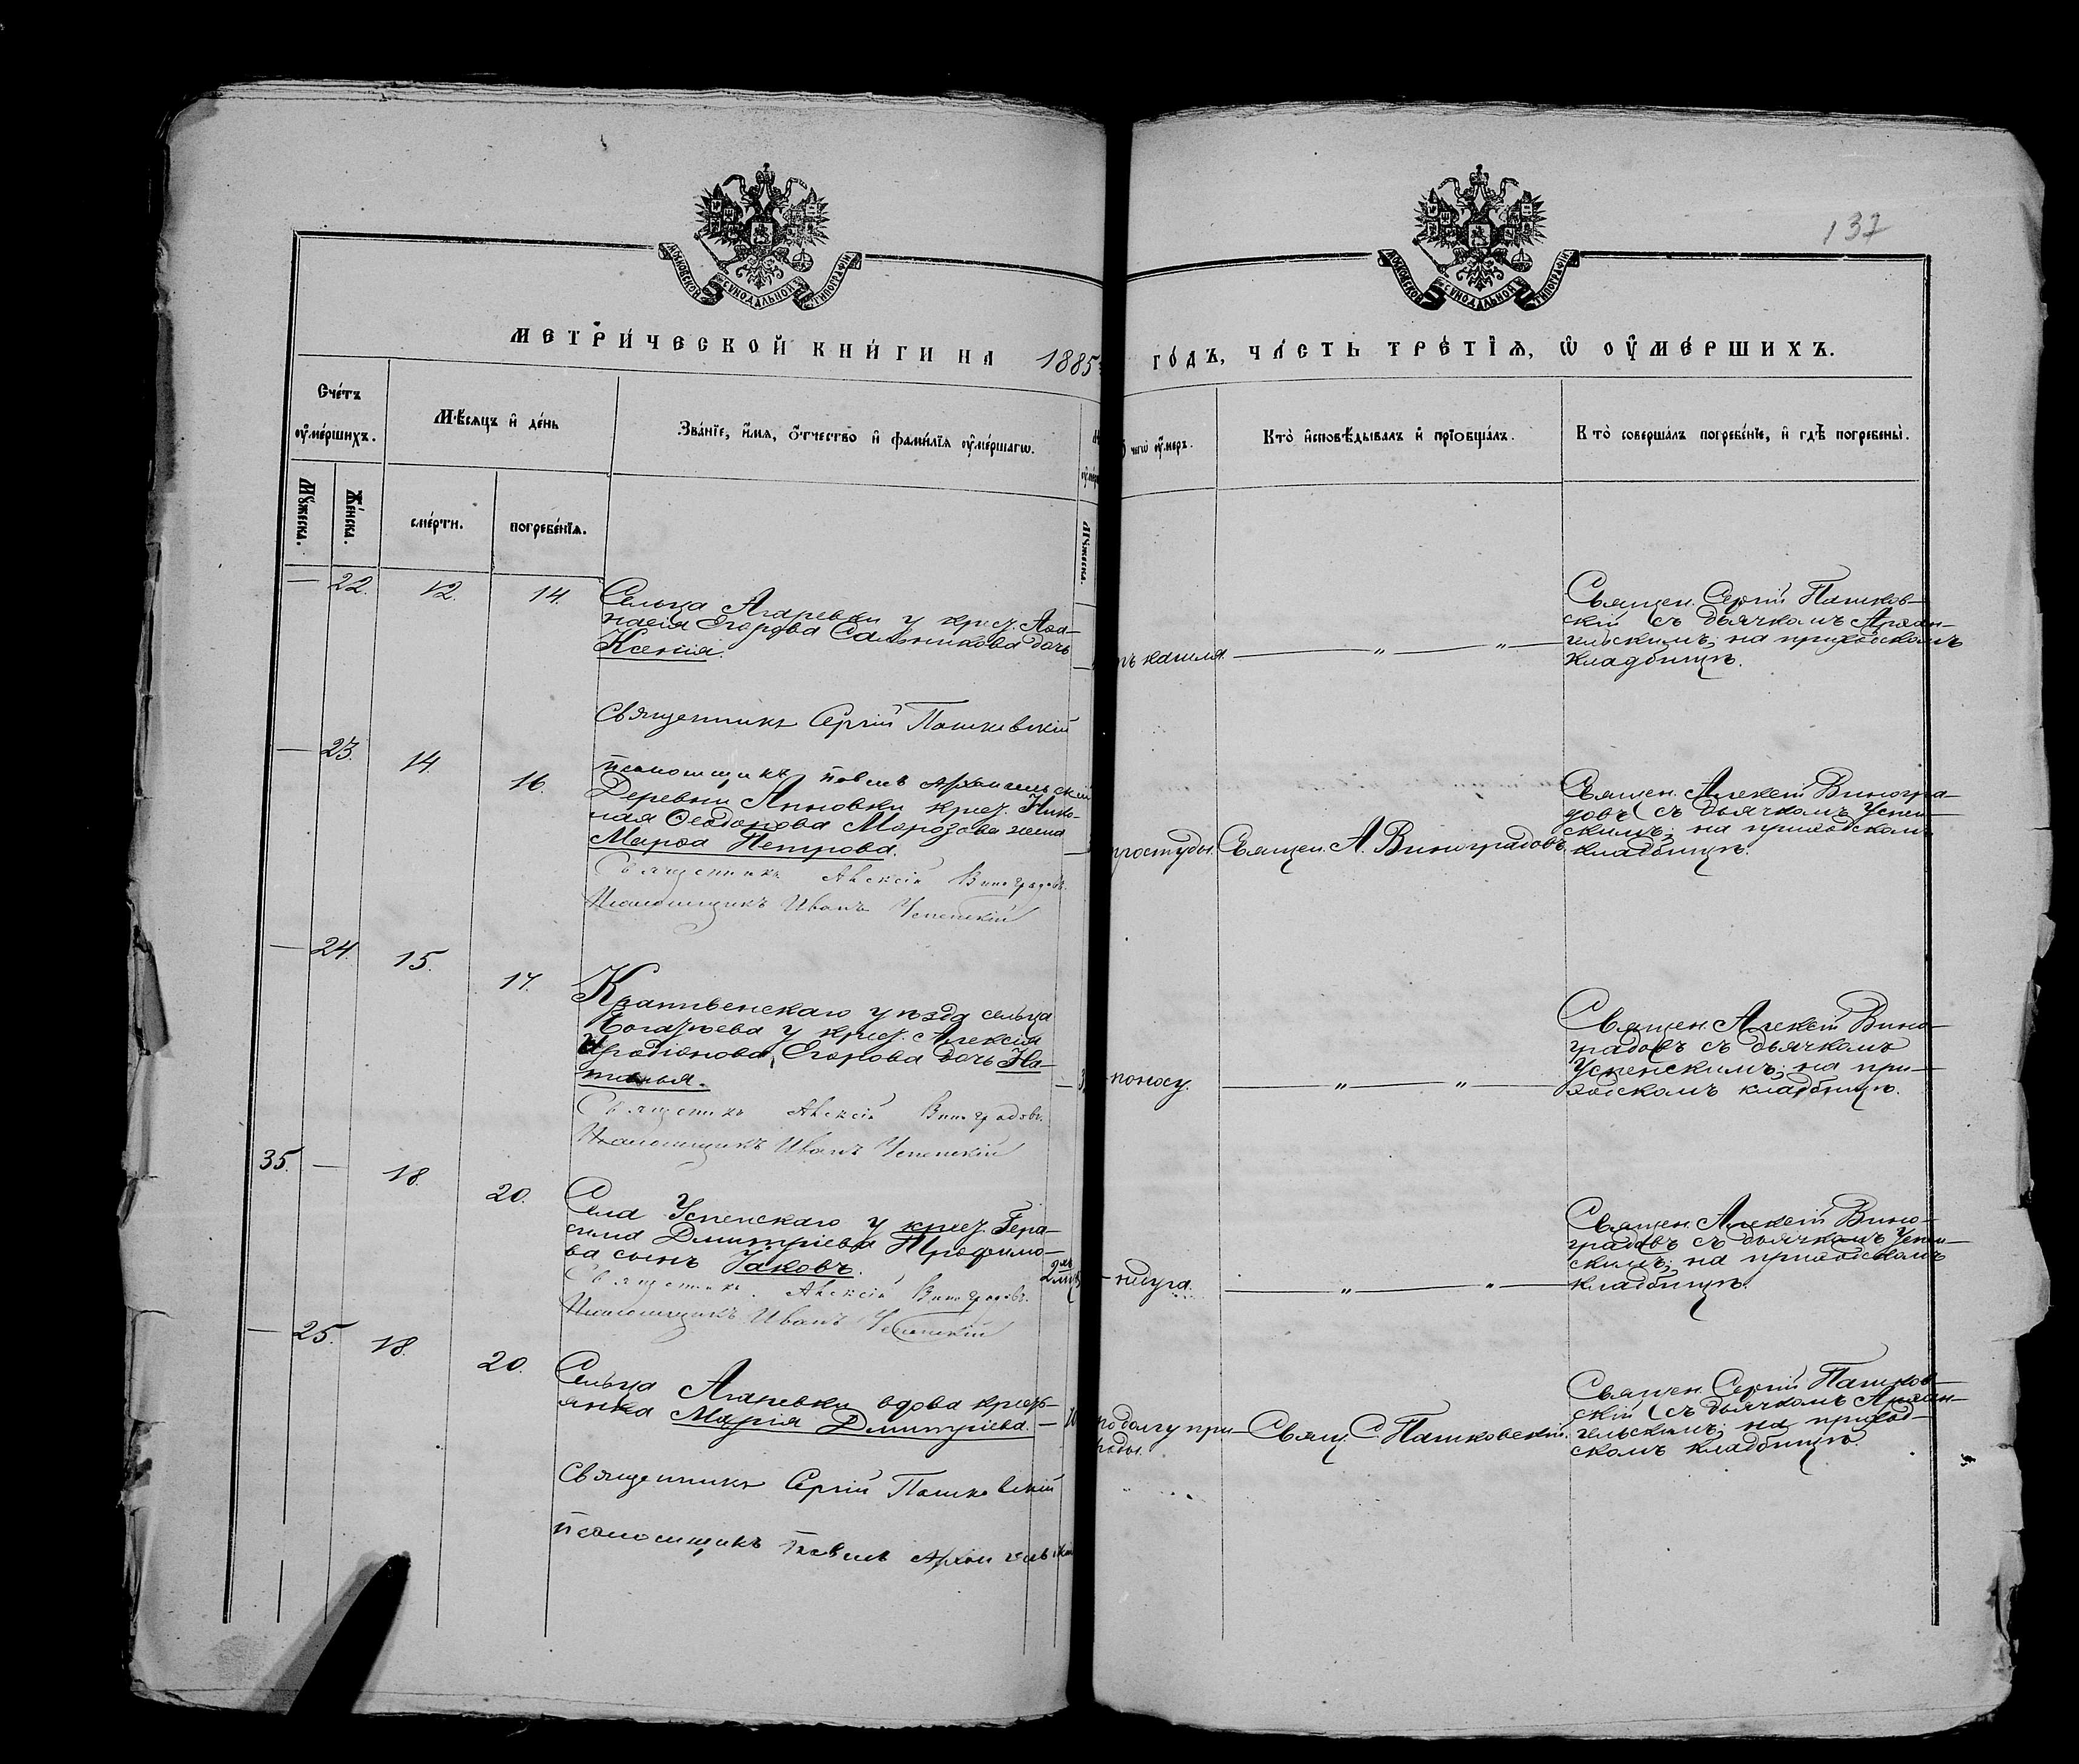 137
МОСКОВСКОЙ СѴНОДАЛЬНОЙ ТИПОГРАФІИ
МОСКОВСКОЙ СѴНОДАЛЬНОЙ ТИПОГРАФІИ
МЕТРИ́ЧЕСКОЙ КНИ́ГИ НА 1885й
ГО́ДЪ, ЧА́СТЬ ТРЕ́ТІѦ, Ѡ ОУМЕ́РШИХЪ.
Сче́тъ
оуме́ршихъ.
Мѣ́сяцъ и де́нь
Зва́нїе, и́мѧ, о́тчество и фами́лїѧ оуме́ршагѡ.
чегѡ оу́меръ.
Кто̀ исповѣ́дывалъ и прїобща́лъ.
Кто̀ соверша́лъ погребе́нїе, и гдѣ̀ погребены̀.
Мꙋ́жеска.
Же́нска.
сме́рти.
погребе́нїѧ.
Мꙋ́жеска.
— 22. 12. 14.
Сельца Агаревки у крест. Аѳа-
насія Егорова Сальникова дочь
Ксенія.
Священникъ Сергій Пашковскій
псаломщикъ Павелъ Архангельскій
кашля. — „ — „ —
Священ. Сергій Пашков-
скій съ дьячкомъ Архан-
гельскимъ; на приходскомъ
кладбищѣ.
— 23. 14. 16.
Деревни Анновки крест. Нико-
лая Ѳеодорова Морозова жена
Марѳа Петрова.
Священникъ Алексій Виноградовъ.
Псаломщикъ Иванъ Успенскій
простуды. Священ. А. Виноградовъ.
Священ. Алексій Виногра-
довъ съ дьячкомъ Успен-
скимъ; на приходскомъ
кладбищѣ.
— 24. 15. 17.
Крапивенскаго уѣзда сельца
у крест. Алексія
Иродіонова Егорова дочь На-
талья.
— 3
Священникъ Алексій Виноградовъ.
Псаломщикъ Иванъ Успенскій
поносу. — „ — „ —
Священ. Алексій Вино-
градовъ съ дьячкомъ
Успенскимъ; на при-
ходскомъ кладбищѣ.
35. — 18. 20.
Села Успенскаго у крест. Гера-
сима Дмитріева Трофимо-
ва сынъ Іаковъ.
Священникъ Алексій Виноградовъ.
Псаломщикъ Иванъ Успенскій
недуга. — „ — „ —
Священ. Алексій Вино-
градовъ съ дьячкомъ Успен-
скимъ; на приходскомъ
кладбищѣ.
— 25. 18. 20.
Сельца Агаревки вдова кресть-
янка Марія Дмитріева. —
Священникъ Сергій Пашковскій
псаломщикъ Павелъ Архангельскій
по долгу при-
роды.
Свящ. С. Пашковскій.
Священ. Сергій Пашков-
скій съ дьячкомъ Архан-
гельскимъ; на приход-
скомъ кладбищѣ.